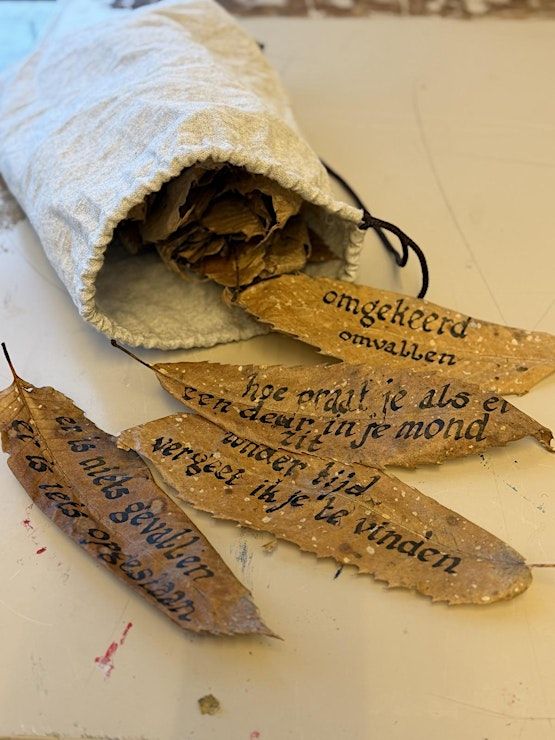 omgekeerd
omvallen
hoe praat je als er
een deur in je mond
zit
onder tijd
vergeet ik je te vinden
er is niets gevallen
er is iets opgestaan